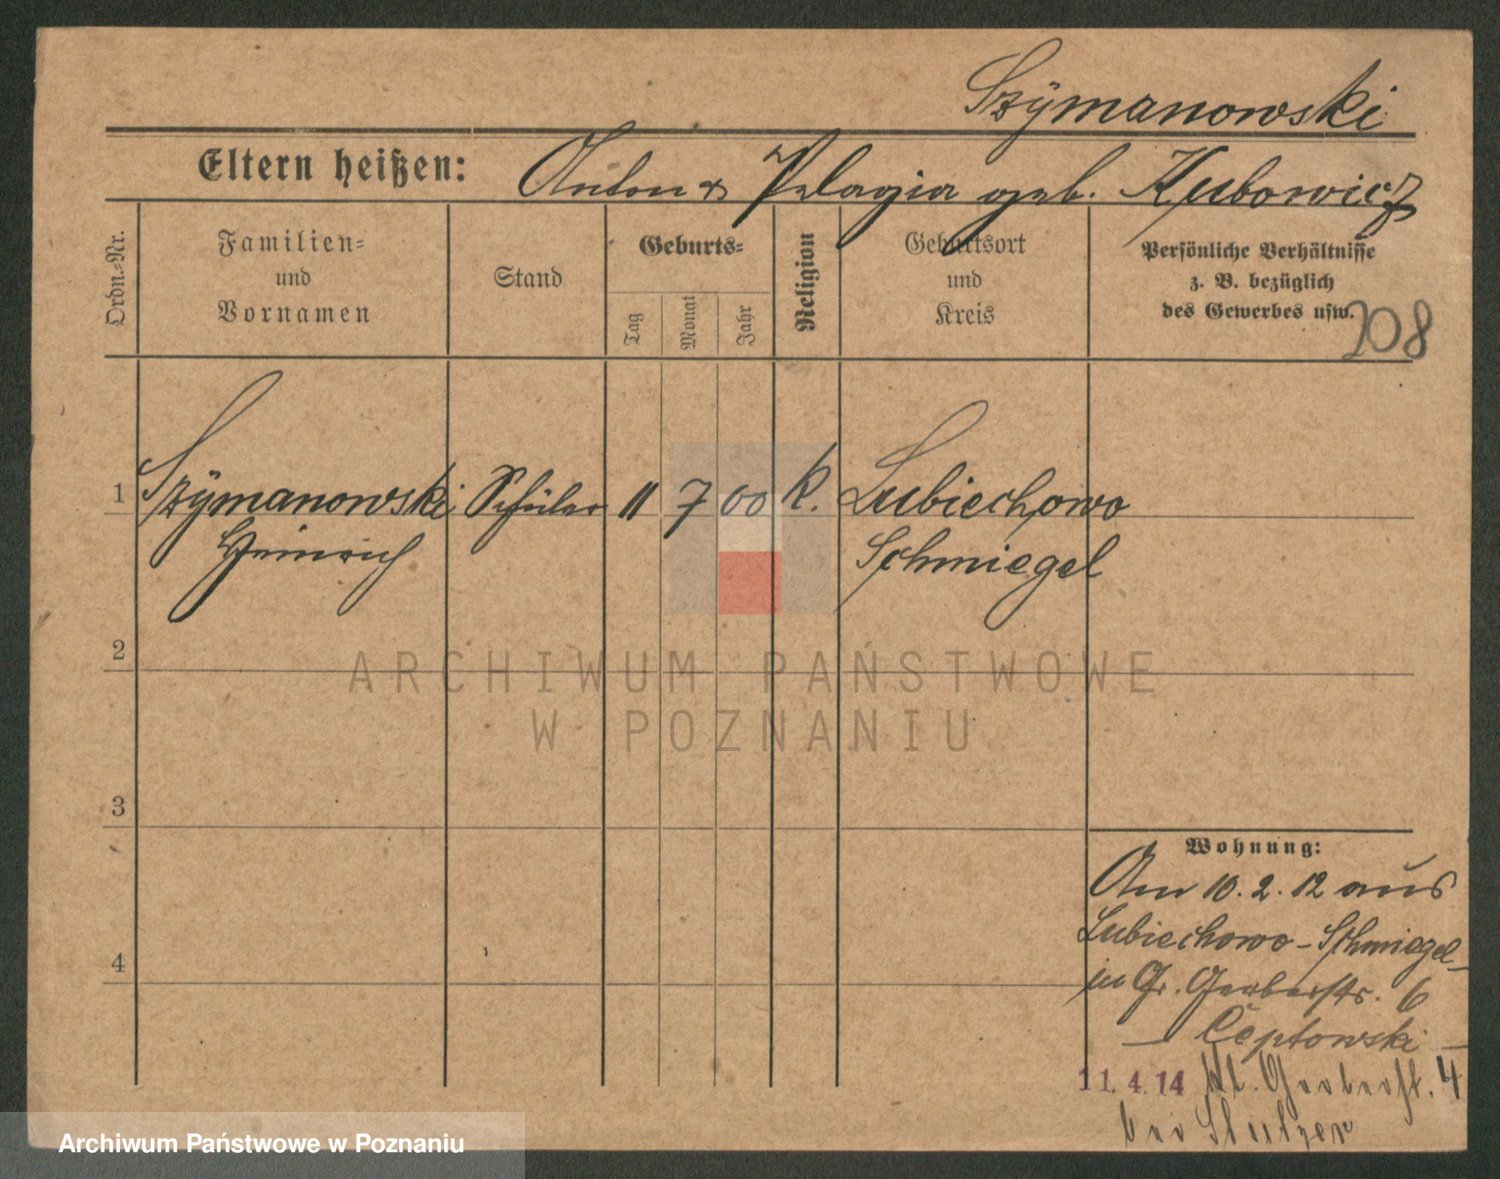 Szÿmanowski
Eltern heißen: Anton & Pelagia geb. Kubowicz
Ordn.-Nr.
Familien-
und
Vornamen
Stand
Geburts-
Tag
Monat
Jahr
Religion
Geburtsort
und
Kreis
Persönliche Verhältnisse
z. B. bezüglich
des Gewerbes usw.
208
1 Szÿmanowski Schüler 11 7 00 K. Lubiechowo
Heinrich Schmiegel
2
ARCHIWUM PAŃSTWOWE
W POZNANIU
3
Wohnung:
Am 10.2.12 aus
Lubiechowo-Schmiegel
in Gr. Gerberstr. 6
— Ceptowski —
4
11.4.14 Kl. Gerberst. 4
bei Stulzer
Archiwum Państwowe w Poznaniu